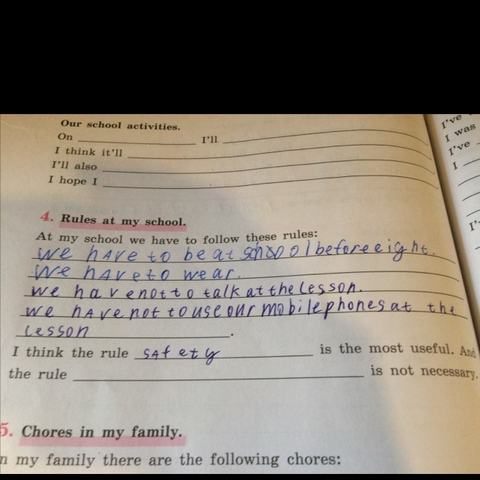 Our school activities.
On ____ I'll ____
I think it'll ____
I'll also ____
I hope I ____
4. Rules at my school.
At my school we have to follow these rules:
We have to be at school before eight.
We have to wear.
we have not to talk at the lesson.
we have not to use our mobile phones at the
lesson.
I think the rule safety is the most useful. And
the rule ____ is not necessary.
5. Chores in my family.
n my family there are the following chores:
I've
I was
I've
I
I'